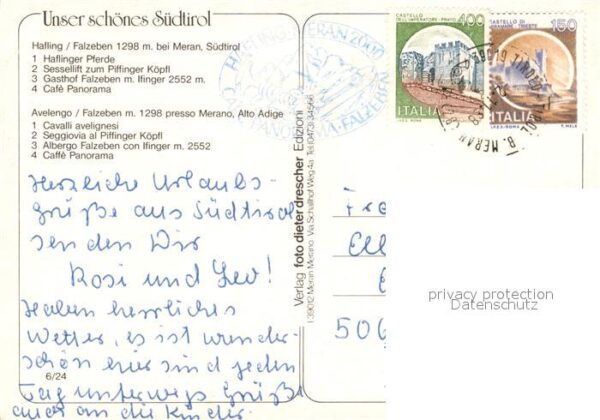 Unser schönes Südtirol
Hafling / Falzeben 1298 m. bei Meran, Südtirol
1 Haflinger Pferde
2 Sessellift zum Piffinger Köpfl
3 Gasthof Falzeben m. Ifinger 2552 m.
4 Café Panorama
Avelengo / Falzeben m. 1298 presso Merano, Alto Adige
1 Cavalli avelignesi
2 Seggiovia al Piffinger Köpfl
3 Albergo Falzeben con Ifinger m. 2552
4 Caffè Panorama
Herzliche Urlaubs-
grüße aus Südtirol
senden Dir
Rosi und Leo!
Haben herrliches
Wetter, es ist wunder-
schön hier sind jeden
Tag unterwegs Grüße
auch an die Kinder
6/24
Verlag foto dieter drescher Edizioni
I-39012 Meran Merano Via Schallhof Weg 4a Tel. (0473) 34566
HAFLING MERAN 2000
PANORAMA-FALZEBEN
CASTELLO
DELL'IMPERATORE - PRATO
400
ITALIA
I.P.Z.S. ROMA
CASTELLO DI
MIRAMARE - TRIESTE
150
ITALIA
I.P.Z.S. - ROMA T. MELE
B. MERAN
Fre
Elle
506
privacy protection
Datenschutz